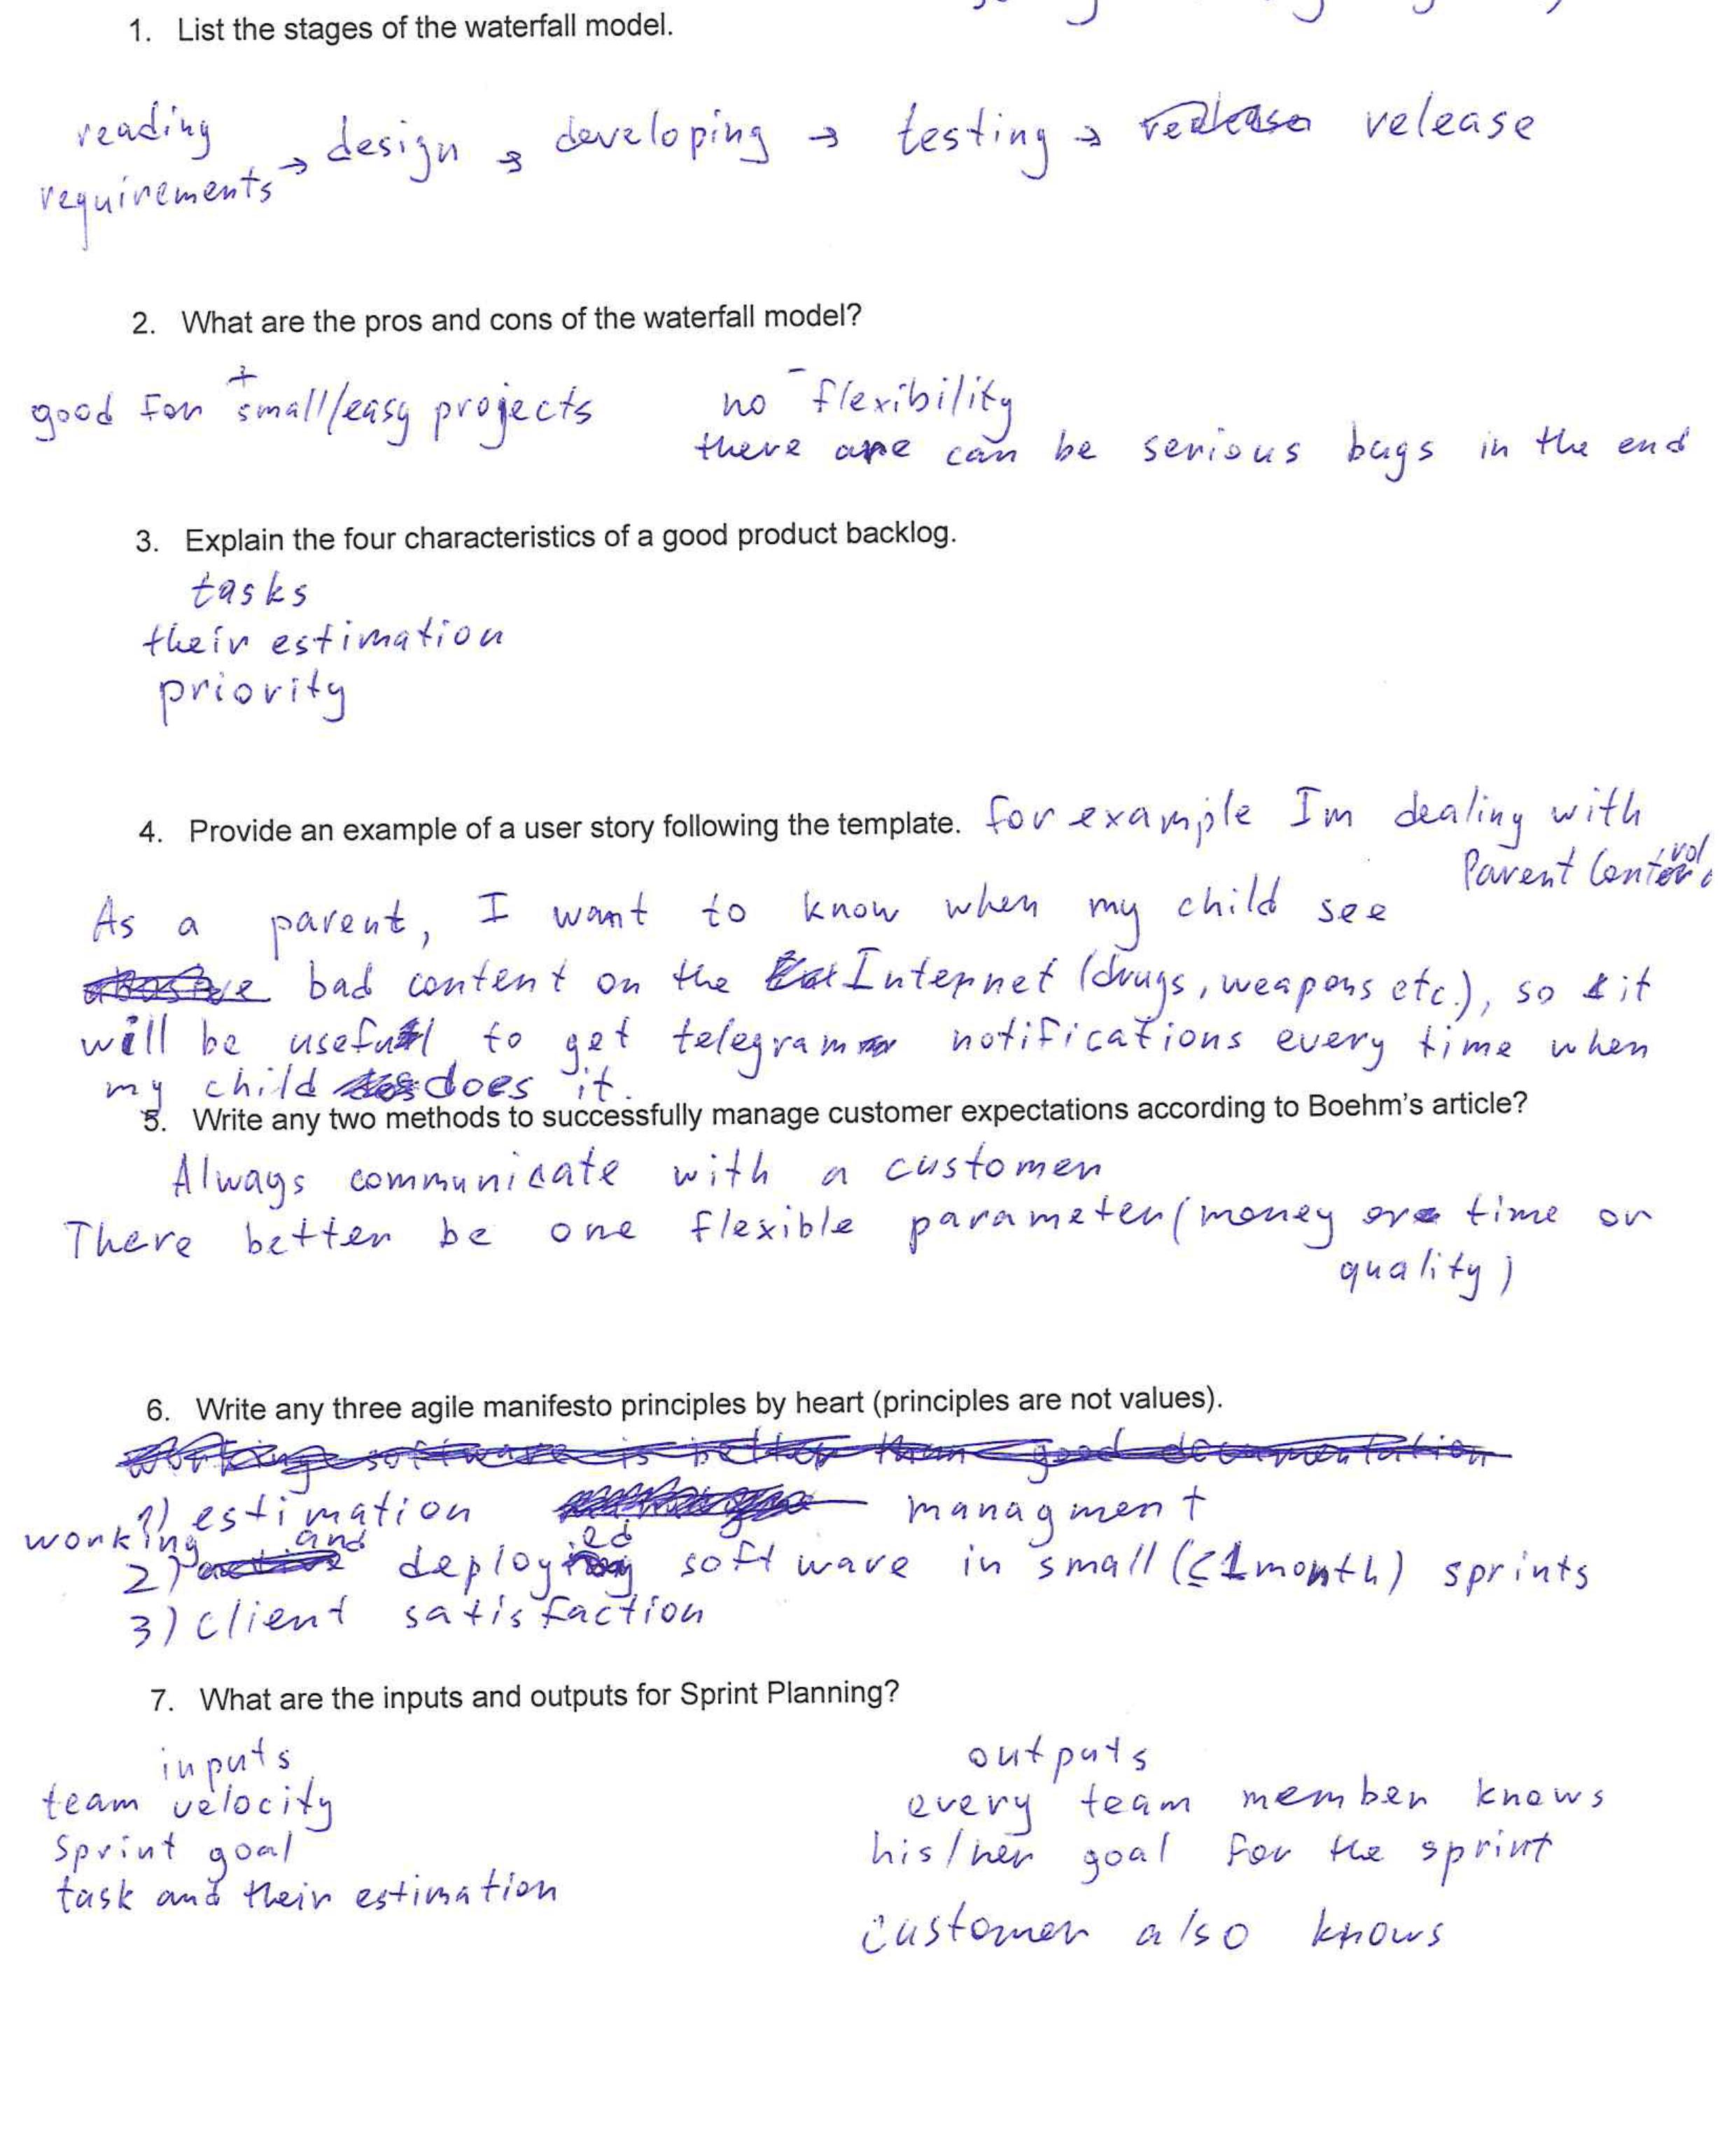 1. List the stages of the waterfall model.
reading
requirements → design → developing → testing → release
2. What are the pros and cons of the waterfall model?
+ -
good for small/easy projects no flexibility
there are can be serious bugs in the end
3. Explain the four characteristics of a good product backlog.
tasks
their estimation
priority
4. Provide an example of a user story following the template. for example Im dealing with
Parent Control
As a parent, I want to know when my child see
bad content on the Internet (drugs, weapons etc.), so it
will be useful to get telegram notifications every time when
my child does it.
5. Write any two methods to successfully manage customer expectations according to Boehm's article?
Always communicate with a customer
There better be one flexible parameter (money or time or
quality)
6. Write any three agile manifesto principles by heart (principles are not values).
working software is better than good documentation
1) estimation managment
2) working and deployed software in small (≤1month) sprints
3) client satisfaction
7. What are the inputs and outputs for Sprint Planning?
inputs outputs
team velocity every team member knows
sprint goal his/her goal for the sprint
task and their estimation
customer also knows